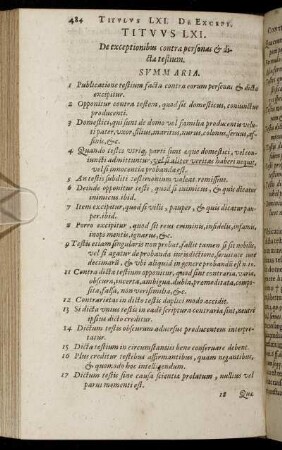 484 TITVLVS LXI. DE EXCEPT.
TITVVS LXI.
De exceptionibus contra personas & di-
cta testium.
SVMMARIA.
1 Publicatione testium facta contra eorum personas & dicta
excipitur.
2 Opponitur contra testem, quod sit domesticus, coniunctus
producenti.
3 Domestici, qui sunt de domo vel familia producentis velu-
ti pater, vxor, filius, maritus, nurus, colonus, seruus, as-
&c.
4 Quando testes vtriq; parti sunt æque domestici, vel con-
iuncti admittuntur, vel si aliter veritas haberi nequit,
vel si innocentia probanda est.
5 Arcte subditi testimonium valeat
6 Deinde opponitur testi, quod sit inimicus, & quis dicatur
inimicus ibid.
7 Item excipitur, quod sit vilis, pauper, & quis dicatur pau-
per. ibid.
8 Porro excipitur, quod sit reus criminis, infidelis, infamis,
inops mentis, ignarus, &c.
9 Testis etiam singularis non probat, facit tamen si sit nobilis,
vel si agatur de probanda iurisdictione, seruitute aut
& vbi aliquid in genere probandū est n. 10.
11 Contra dicta testium opponitur, quod sint contraria, varia,
obscura, incerta, ambigua, dubia, præmeditata, compo-
sita, falsa, non verisimilia, &c.
12 Contrarietas in dicto testis duplici modo accidit.
13 Si dicta vnius testis in eadē scriptura contraria sint, neutri
ipsius dicto creditur.
14 Dictum testis obscurum aduersus producentem interpre-
tatur.
15 Dicta testium in circumstantiis bene conseruare debent.
16 Plus creditur testibus affirmantibus, quam negantibus,
& quomodo hoc intelligendum.
17 Dictum testis sine causa scientiæ prolatum, nullius vel
parui momenti est.
18 Quæ